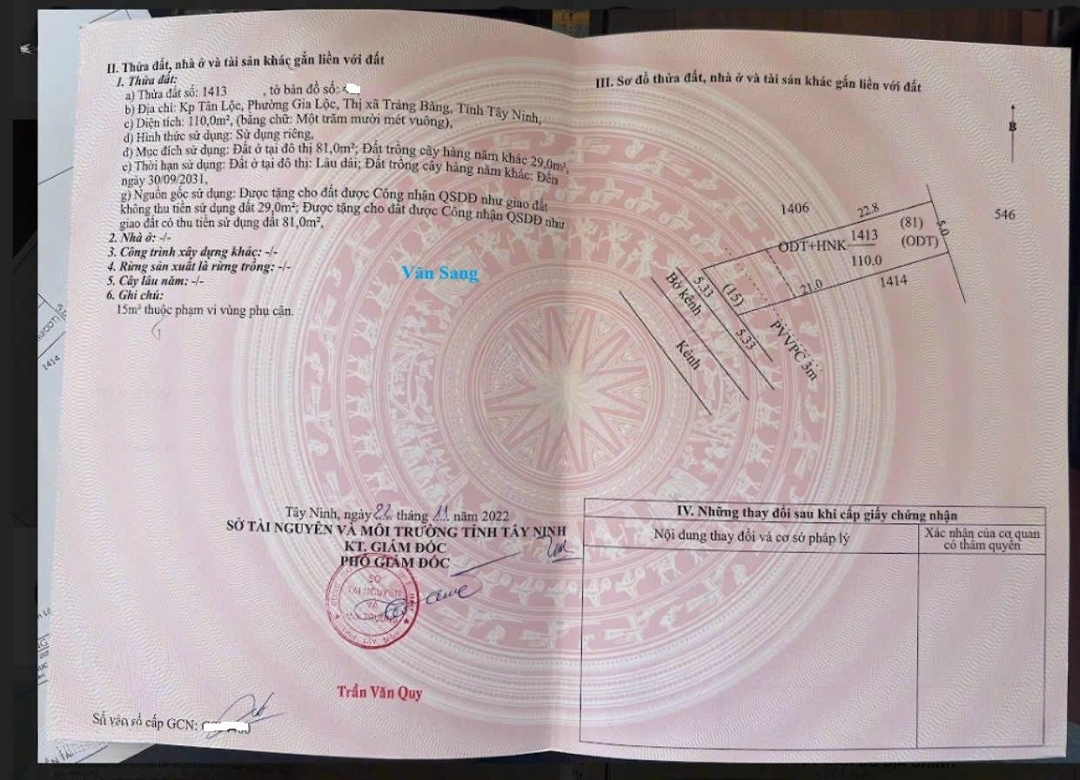 II. Thửa đất, nhà ở và tài sản khác gắn liền với đất
1. Thửa đất:
a) Thửa đất số: 1413 , tờ bản đồ số:
b) Địa chỉ: Kp Tân Lộc, Phường Gia Lộc, Thị xã Trảng Bàng, Tỉnh Tây Ninh,
c) Diện tích: 110,0m², (bằng chữ: Một trăm mười mét vuông),
d) Hình thức sử dụng: Sử dụng riêng,
đ) Mục đích sử dụng: Đất ở tại đô thị 81,0m²; Đất trồng cây hàng năm khác 29,0m²,
e) Thời hạn sử dụng: Đất ở tại đô thị: Lâu dài; Đất trồng cây hàng năm khác: Đến
ngày 30/09/2031,
g) Nguồn gốc sử dụng: Được tặng cho đất được Công nhận QSDĐ như giao đất
không thu tiền sử dụng đất 29,0m²; Được tặng cho đất được Công nhận QSDĐ như
giao đất có thu tiền sử dụng đất 81,0m²,
2. Nhà ở: -/-
3. Công trình xây dựng khác: -/-
4. Rừng sản xuất là rừng trồng: -/-
5. Cây lâu năm: -/-
6. Ghi chú:
15m² thuộc phạm vi vùng phụ cận.
Văn Sang
Tây Ninh, ngày 22 tháng 11 năm 2022
SỞ TÀI NGUYÊN VÀ MÔI TRƯỜNG TỈNH TÂY NINH
KT. GIÁM ĐỐC
PHÓ GIÁM ĐỐC
SỞ
TÀI NGUYÊN
VÀ
MÔI TRƯỜNG
Trần Văn Quy
Số vào sổ cấp GCN:
III. Sơ đồ thửa đất, nhà ở và tài sản khác gắn liền với đất
B
1406
22.8
546
(81)
5.0
ODT+HNK
1413
110.0
(ODT)
21.0
1414
5.33
(15)
Bờ kênh
5.33
PVVPC 3m
Kênh
IV. Những thay đổi sau khi cấp giấy chứng nhận
Nội dung thay đổi và cơ sở pháp lý
Xác nhận của cơ quan
có thẩm quyền
1414